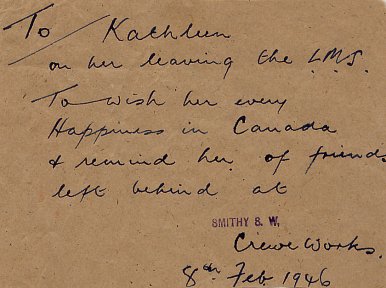 To / Kathleen
on her leaving the L.M.S.
To wish her every
Happiness in Canada
& remind her of friends
left behind at
SMITHY S. W.
Crewe Works.
8th Feb 1946